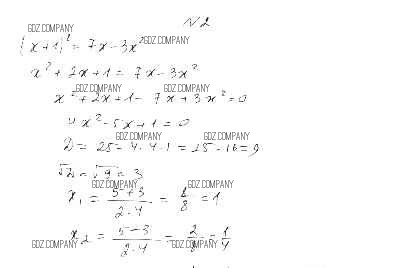 N2
GDZ.COMPANY
(x+1)² = 7x-3x² GDZ.COMPANY
x² + 2x+1 = 7x-3x²
GDZ.COMPANY GDZ.COMPANY
x² + 2x+1 - 7x+3x² = 0
4x² - 5x+1 = 0
GDZ.COMPANY GDZ.COMPANY
D = 25 - 4·4·1 = 25-16 = 9
√D = √9 = 3
GDZ.COMPANY GDZ.COMPANY
x₁ = 5+3 / 2·4 = 8/8 = 1
x₂ = 5-3 / 2·4 = 2/8 = 1/4
GDZ.COMPANY GDZ.COMPANY GDZ.COMPANY